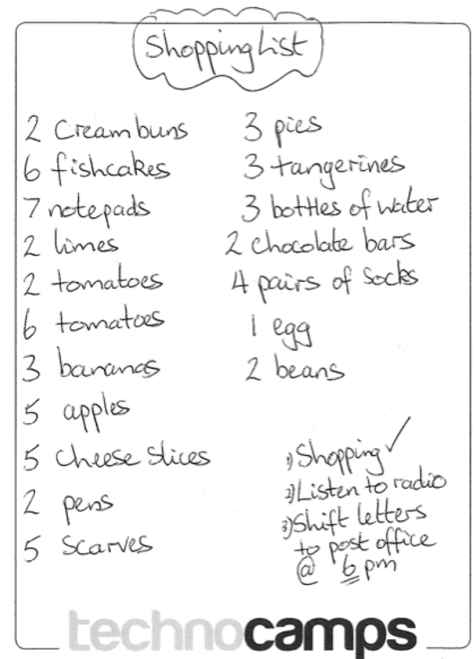 Shopping List
2 Cream buns
6 fishcakes
7 notepads
2 limes
2 tomatoes
6 tomatoes
3 bananas
5 apples
5 cheese slices
2 pens
5 scarves
3 pies
3 tangerines
3 bottles of water
2 chocolate bars
4 pairs of socks
1 egg
2 beans
1) Shopping ✓
2) Listen to radio
3) Shift letters
to post office
@ 6 pm
technocamps